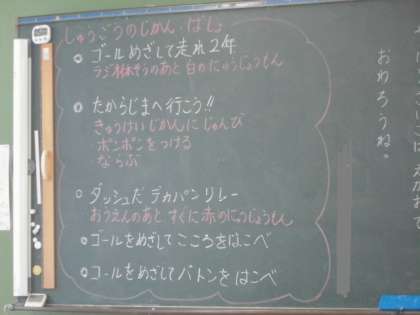 しゅうごうのじかん・ばしょ
ゴールめざして走れ2年
ラジオ体そうのあと 白のにゅうじょうもん
たからじまへ行こう!!
きゅうけいじかんにじゅんび
・ポンポンをつける
・ならぶ
ダッシュだ デカパンリレー
おうえんのあと すぐに赤のにゅうじょうもん
ゴールをめざしてこころをはこべ
ゴールをめざしてバトンをはこべ
おわろうね。